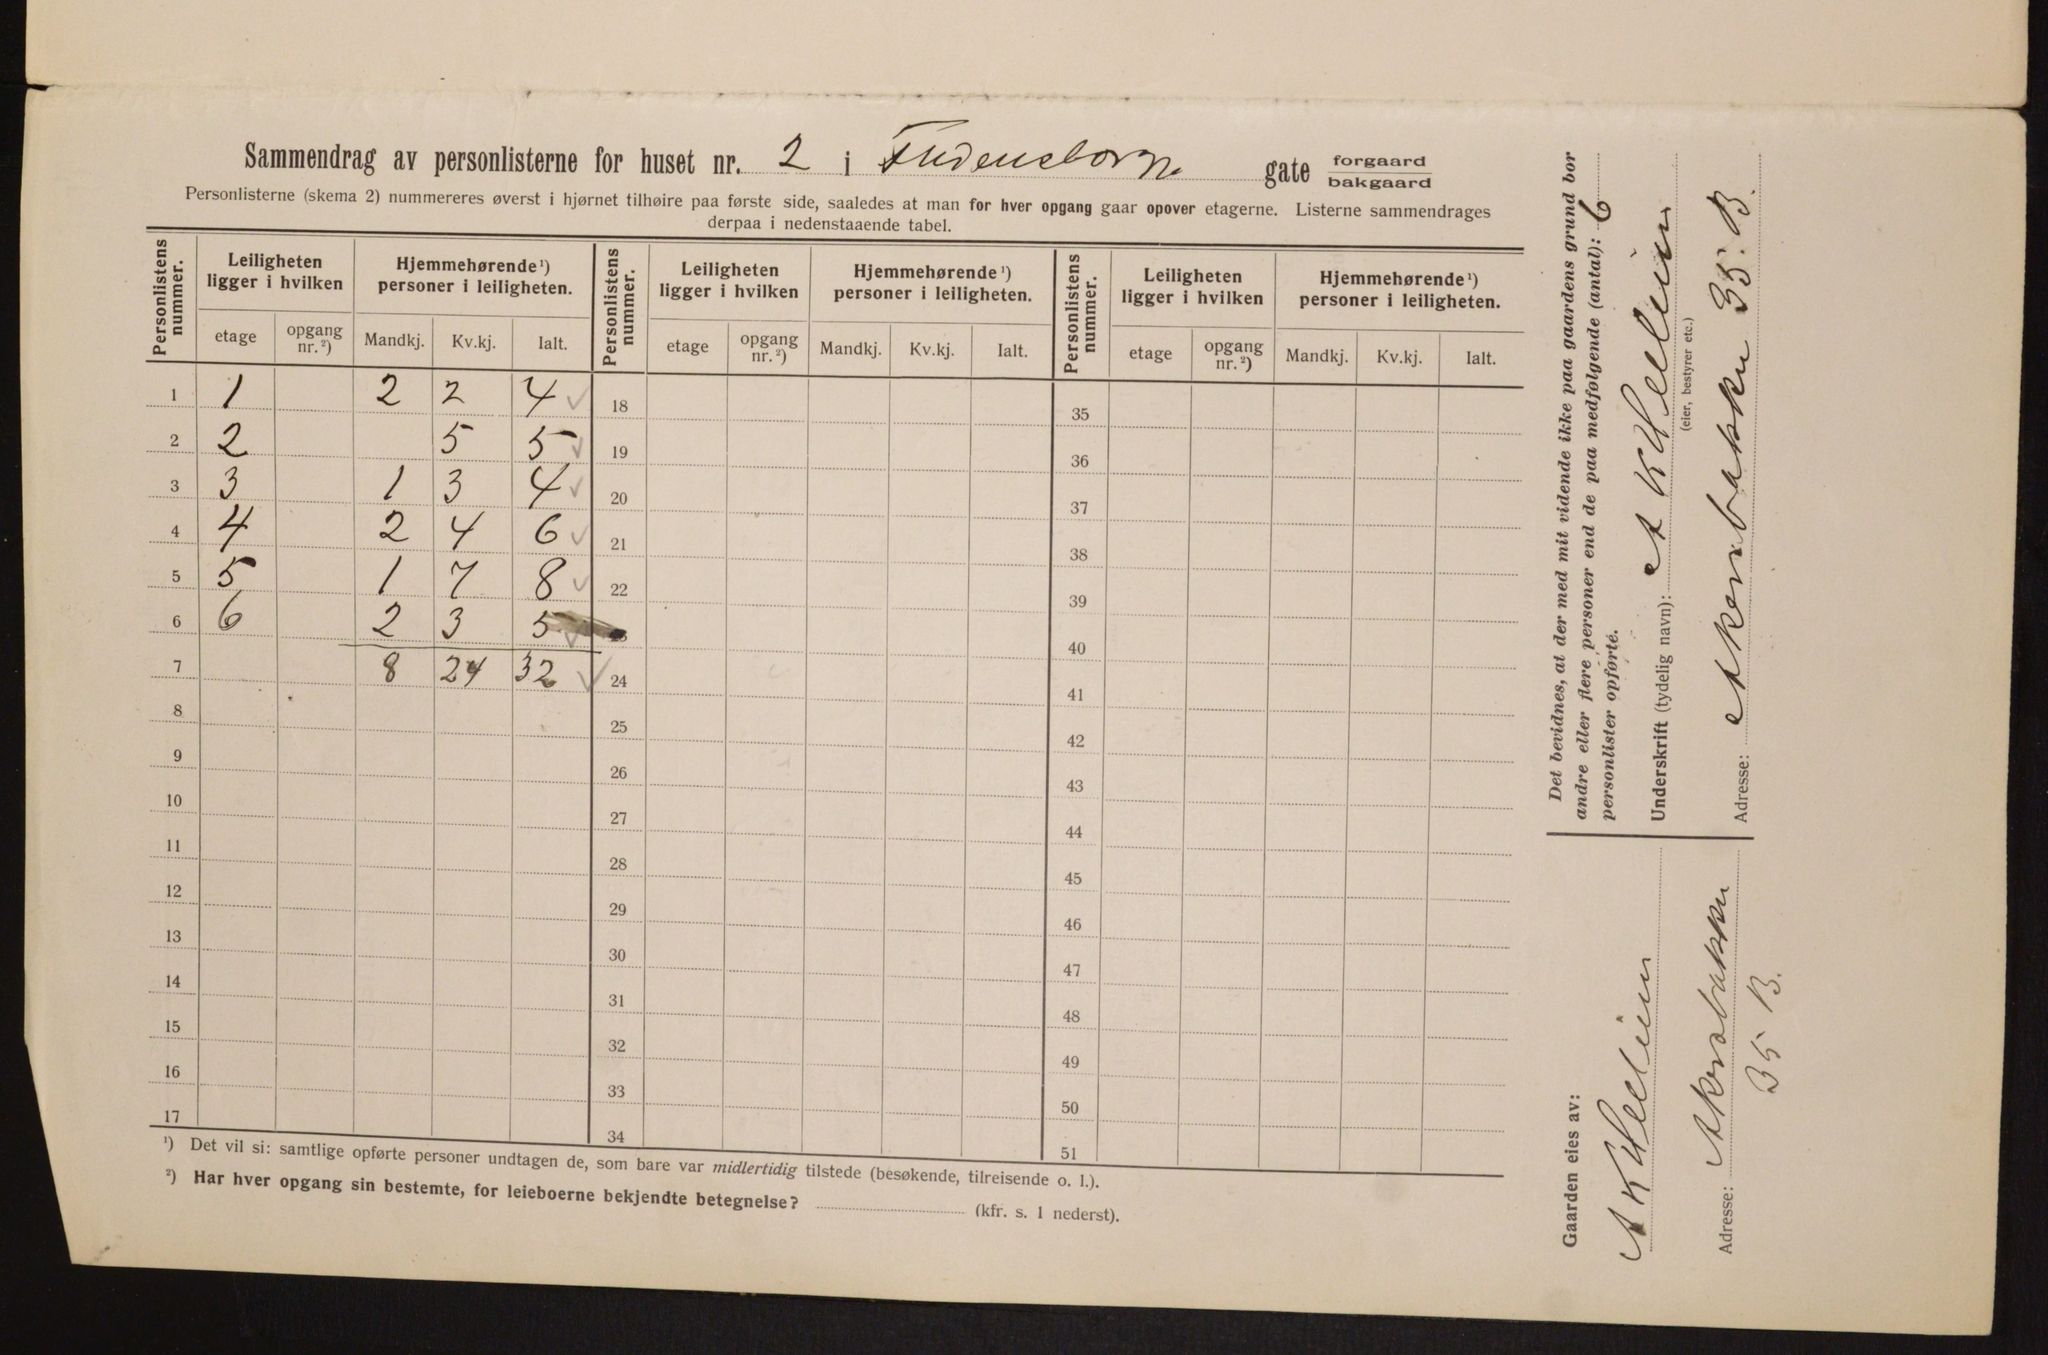 Sammendrag av personlisterne for huset nr. 2 i Fredensborg gate forgaard
bakgaard
Personlisterne (skema 2) nummereres øverst i hjørnet tilhøire paa første side, saaledes at man for hver opgang gaar opover etagerne. Listerne sammendrages
derpaa i nedenstaaende tabel.
Personlistens nummer. Leiligheten ligger i hvilken Hjemmehørende ¹) personer i leiligheten. Personlistens nummer. Leiligheten ligger i hvilken Hjemmehørende ¹) personer i leiligheten. Personlistens nummer. Leiligheten ligger i hvilken Hjemmehørende ¹) personer i leiligheten.
etage opgang nr. ²) Mandkj. Kv.kj. Ialt. etage opgang nr. ²) Mandkj. Kv.kj. Ialt. etage opgang nr. ²) Mandkj. Kv.kj. Ialt.
1 1 2 2 4 ✓ 18 35
2 2 5 5 ✓ 19 36
3 3 1 3 4 ✓ 20 37
4 4 2 4 6 ✓ 21 38
5 5 1 7 8 ✓ 22 39
6 6 2 3 5 ✓ 40
7 8 24 32 ✓ 24 41
8 25 42
9 26 43
10 27 44
11 28 45
12 29 46
13 30 47
14 31 48
15 32 49
16 33 50
17 34 51
¹) Det vil si: samtlige opførte personer undtagen de, som bare var midlertidig tilstede (besøkende, tilreisende o. l.).
²) Har hver opgang sin bestemte, for leieboerne bekjendte betegnelse? (kfr. s. 1 nederst).
Det bevidnes, at der med mit vidende ikke paa gaardens grund bor
andre eller flere personer end de paa medfølgende (antal): 6
personlister opførte.
Underskrift (tydelig navn): A K Hellum
(eier, bestyrer etc.)
Adresse: Akersbakken 35. B.
Gaarden eies av:
A K Hellum
Adresse: Akersbakken
35 B.